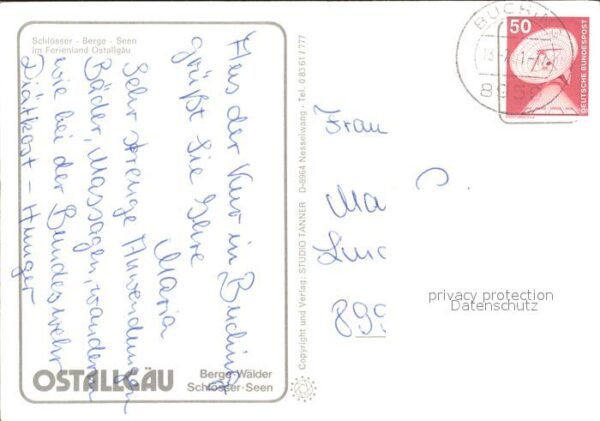 Schlösser - Berge - Seen
im Ferienland Ostallgäu
Aus der Kur in Buching
grüßt Sie Ihre
Maria
Sehr strenge Anwendungen
Bäder, Massagen, wandern
wie bei der Bundeswehr
Diätkost - Hunger
OSTALLGÄU
Berge·Wälder
Schlösser·Seen
Copyright und Verlag: STUDIO TANNER D-8964 Nesselwang - Tel. 0 83 61 / 777
BUCHIN
50
DEUTSCHE BUNDESPOST
Frau
Ma
899
privacy protection
Datenschutz